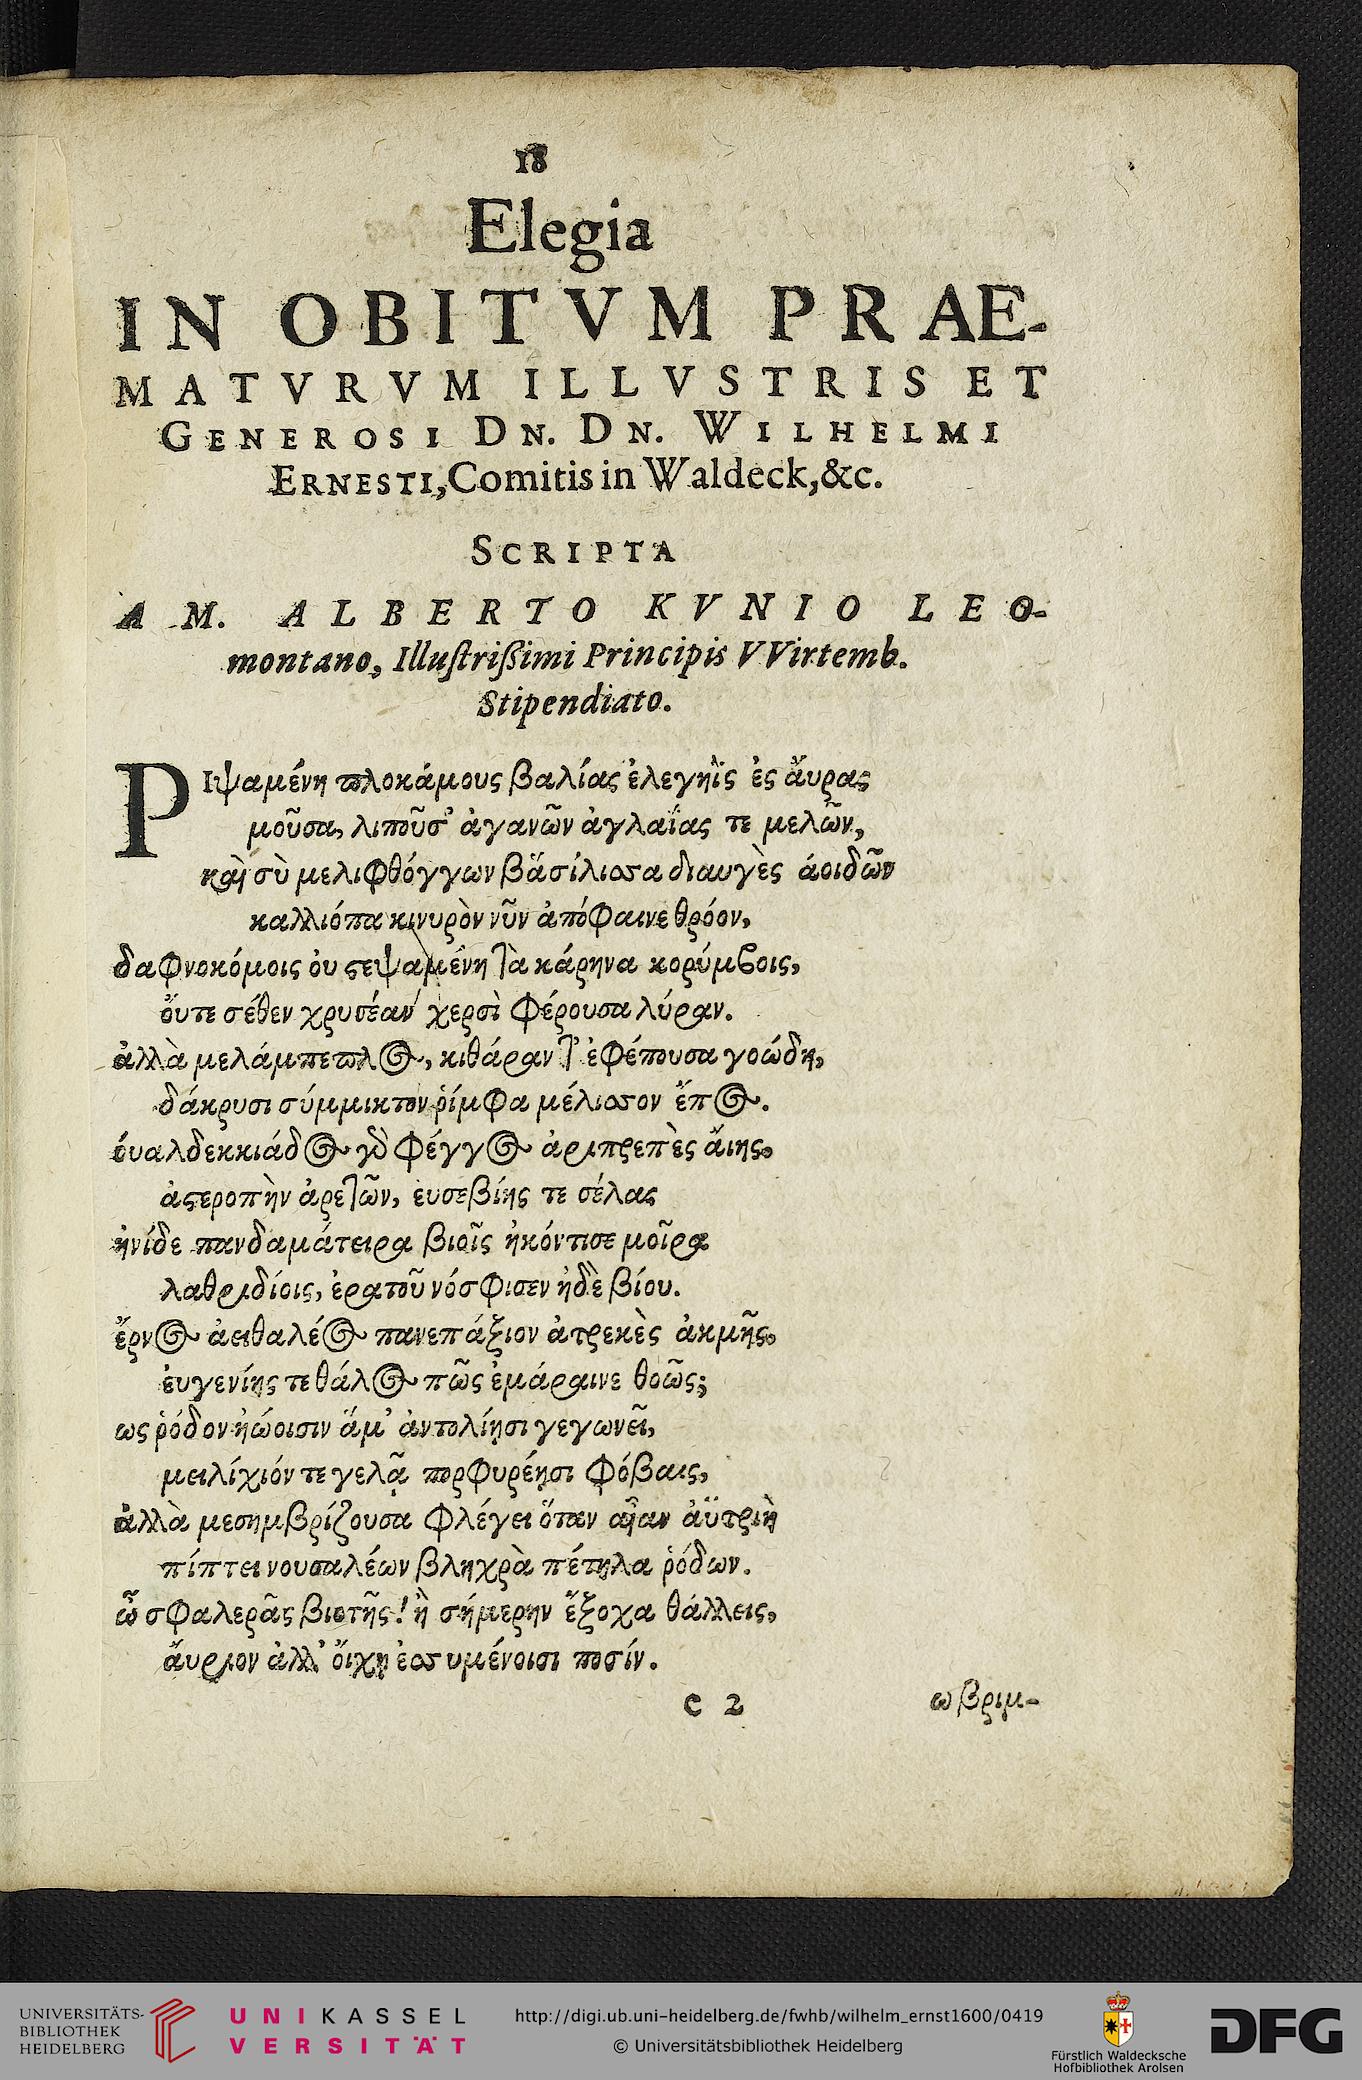 18
Elegia
IN OBITVM PRAE-
MATVRVM ILLVSTRIS ET
GENEROSI DN. DN. WILHELMI
ERNESTI, Comitis in Waldeck, &c.
SCRIPTA
A M. ALBERTO KVNIO LEO-
montano, Illustrißimi Principis VVirtemb.
Stipendiato.
Ριψαμένη πλοκάμους βαλίας ἐλεγηῒς ἐς ἄυρας
μοῦσα, λιποῦσ' ἀγανῶν ἀγλαΐας τε μελῶν,
καὶ σὺ μελιφθόγγων βασίλισσα διαυγὲς ἀοιδῶν
καλλιόπα κινυρὸν νῦν ἀπόφαινε θρόον,
δαφνοκόμοις ὀυ στεψαμένη τὰ κάρηνα κορύμβοις,
ὄυτε σέθεν χρυσέαν χερσὶ φέρουσα λύραν.
ἀλλὰ μελάμπεπλος, κιθάραν τ' ἐφέπουσα γοώδη,
δάκρυσι σύμμικτον ῥίμφα μέλισσον ἔπος.
ὀυαλδεκκιάδος γὸ φέγγος ἀριπρεπὲς ἄιης,
ἀστεροπὴν ἀρετῶν, ἐυσεβίης τε σέλας
ἠνίδε πανδαμάτειρα βιοῖς ἠκόντισε μοῖρα
λαθριδίοις, ἐρατοῦ νόσφισεν ἠδὲ βίου.
ἔρνος ἀειθαλέος πανεπάξιον ἀτρεκὲς ἀκμῆς,
ἐυγενίης τε θάλος πῶς ἐμάραινε θοῶς;
ως ῥόδον ἠώοισιν ἅμ' ἀντολίησι γεγωνεῖ,
μειλίχιόν τε γελᾷ πορφυρέησι φόβαις,
ἀλλὰ μεσημβρίζουσα φλέγει ὅταν αἶαν ἀϋτμὴ
πίπτει νουσαλέων βληχρὰ πέτηλα ῥόδων.
ὦ σφαλερᾶς βιοτῆς! ἢ σήμερην ἔξοχα θάλλεις,
ἄυριον ἀλλ' ὄιχη ἐσσυμένοισι ποσίν.
C 2
ωβριμ-
UNIVERSITÄTS-
BIBLIOTHEK
HEIDELBERG
UNIKASSEL
VERSITÄT
http://digi.ub.uni-heidelberg.de/fwhb/wilhelm_ernst1600/0419
© Universitätsbibliothek Heidelberg
Fürstlich Waldecksche
Hofbibliothek Arolsen
DFG